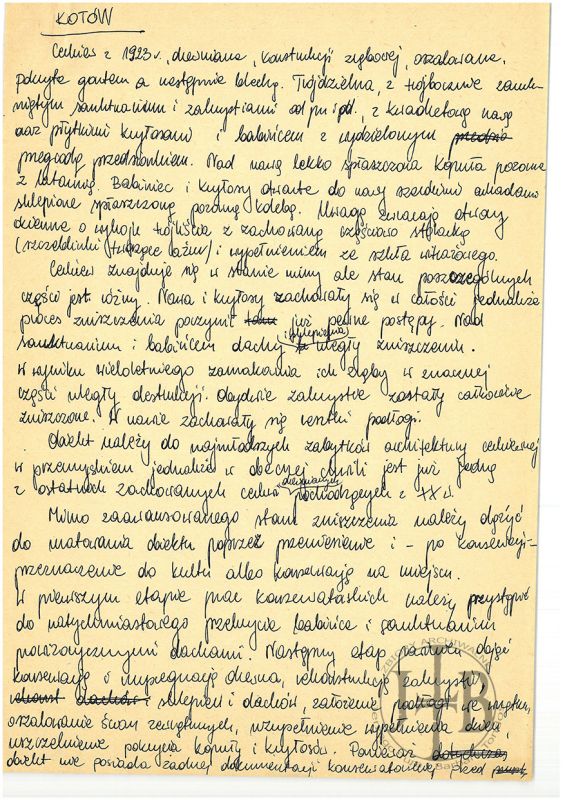 KOTÓW
Cerkiew z 1923 r., drewniana, konstrukcji zrębowej, oszalowana,
pokryta gontem a następnie blachą. Trójdzielna, z trójbocznie zamk-
niętym sanktuarium i zakrystiami od pn i pd., z kwadratową nawą
oraz płytkimi kryłosami i babińcem z wydzielonym przedsio
przegrodą przedsionkiem. Nad nawą lekko spłaszczona kopuła pozorna
z latarnią. Babiniec i kryłosy otwarte do nawy szerokimi arkadami
sklepione spłaszczoną pozorną kolebą. Uwagę zwracają otwory
okienne o wykroju trójliścia z zachowaną częściowo stolarką
(szczeblinki tworzące ażur) i wypełnieniem ze szkła witrażowego.
Cerkiew znajduje się w stanie ruiny ale stan poszczególnych
części jest różny. Nawa i kryłosy zachowały się w całości jednakże
proces zniszczenia poczynił już pewne postępy. Nad
sanktuarium i babińcem dachy i sklepienia uległy zniszczeniu.
W wyniku wieloletniego zamakania ich zręby w znacznej
części uległy destrukcji. Obydwie zakrystie zostały całkowicie
zniszczone. W nawie zachowały się resztki podłogi.
Obiekt należy do najmłodszych zabytków architektury cerkiewnej
w przemyskiem jednakże w obecnej chwili jest już jedną
z ostatnich zachowanych cerkwi drewnianych pochodzących z XX w.
Mimo zaawansowanego stanu zniszczenia należy dążyć
do ratowania obiektu poprzez przeniesienie i - po konserwacji -
przeznaczenie do kultu albo konserwację na miejscu.
W pierwszym etapie prac konserwatorskich należy przystąpić
do natychmiastowego przekrycia babińca i sanktuarium
prowizorycznymi dachami. Następny etap powinien objąć
konserwację i impregnację drewna, rekonstrukcję zakrystii,
rekonst dachów i sklepień i dachów, założenie podłogi we wnętrzu,
oszalowanie ścian zewnętrznych, uzupełnienie wypełnienia okien,
uszczelnienie pokrycia kopuły i kryłosów. Ponieważ dotychczas
obiekt nie posiada żadnej dokumentacji konserwatorskiej przed